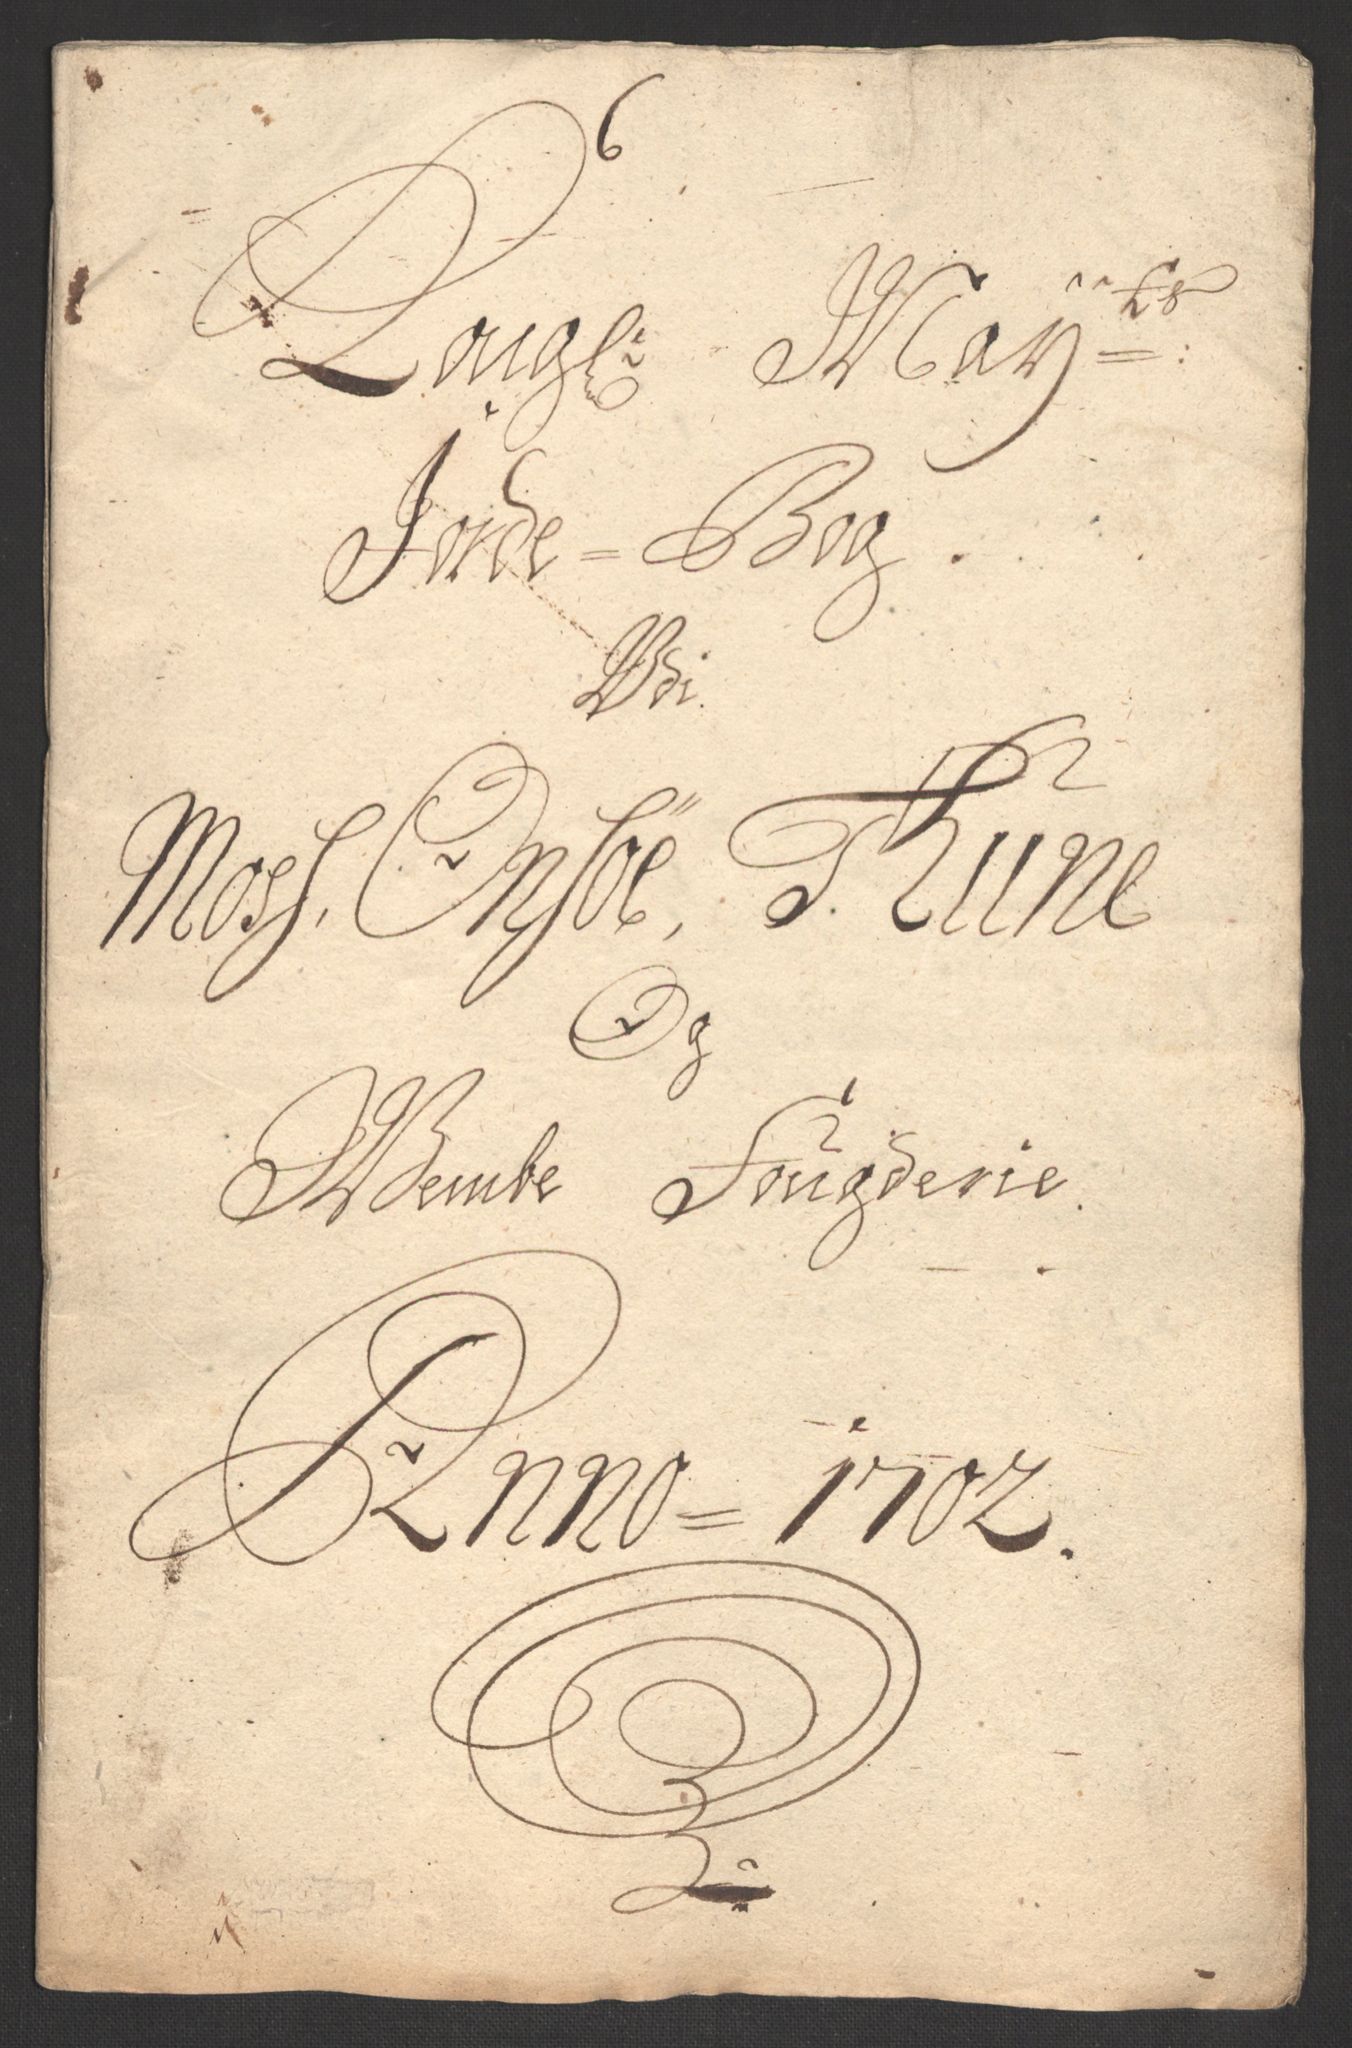 6
Kongl: May=ts:
Jorde=Bog.
Udi
Moss, Onsöe, Thune
Og
Wembe Fougderie.
Anno=1702.